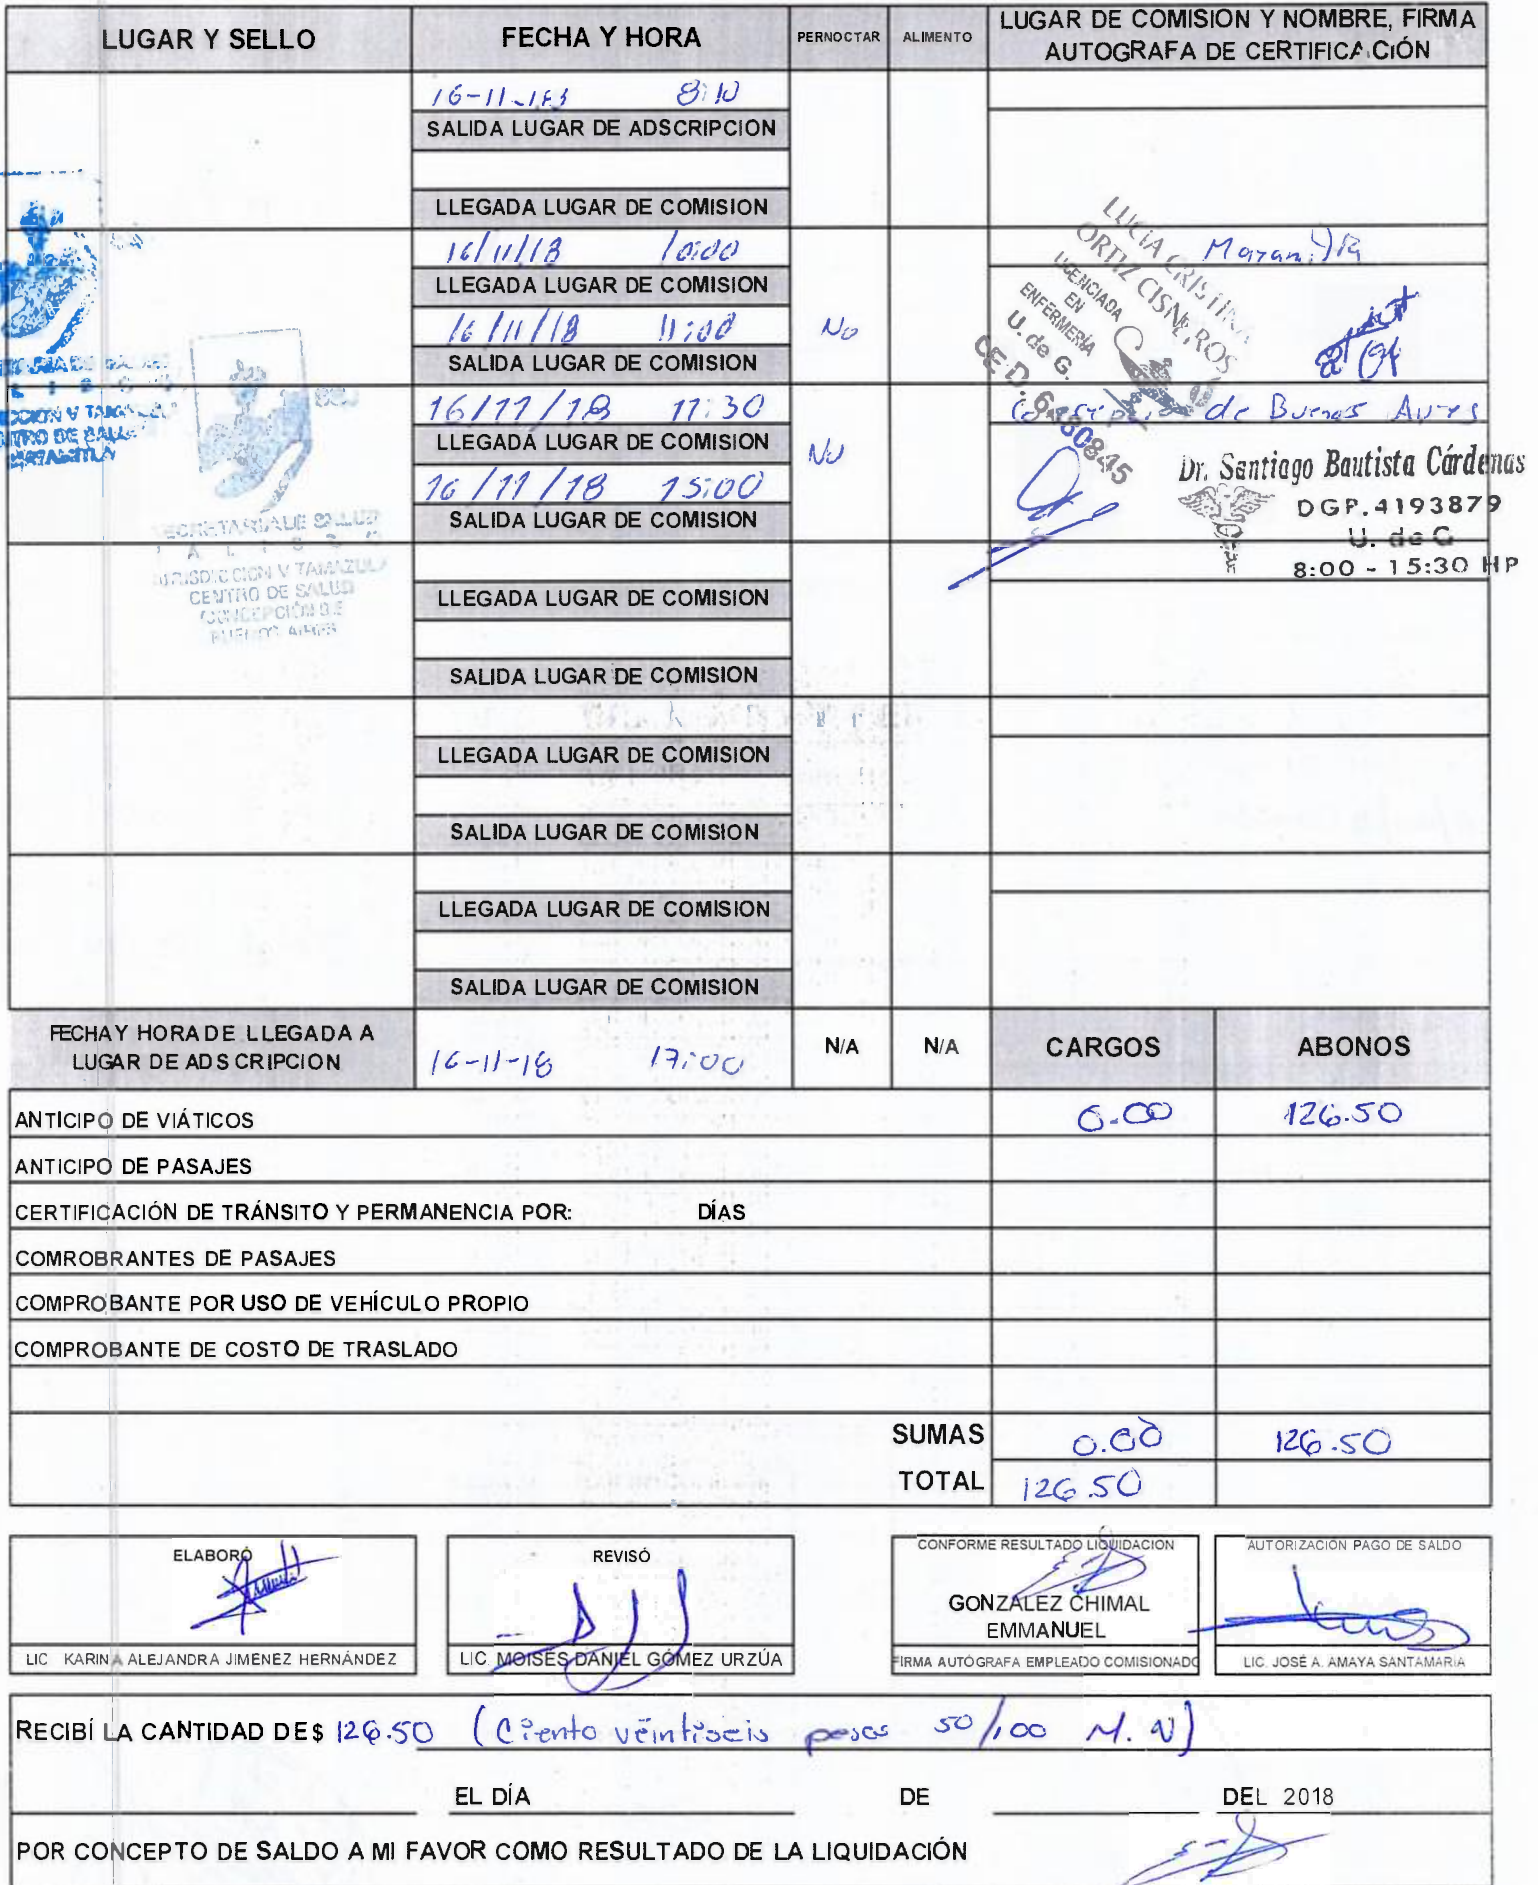 LUGAR Y SELLO
FECHA Y HORA
PERNOCTAR
ALIMENTO
LUGAR DE COMISION Y NOMBRE, FIRMA
AUTOGRAFA DE CERTIFICACIÓN
8:10
SALIDA LUGAR DE ADSCRIPCION
LLEGADA LUGAR DE COMISION
16/11/18 10:00
LLEGADA LUGAR DE COMISION
16/11/18 11:00
No
SALIDA LUGAR DE COMISION
LUCIA CRISTINA
ORTIZ CISNEROS
LICENCIADA
EN
ENFERMERÍA
U. de G.
CED. 6480845
16/11/18 11:30
de Buenos Aires
LLEGADA LUGAR DE COMISION
NO
16/11/18 15:00
SALIDA LUGAR DE COMISION
Dr. Santiago Bautista Cárdenas
DGP.4193879
U. de G
8:00 - 15:30 HP
SECRETARIA DE SALUD
JALISCO
JURISDICCION V TAMAZULA
CENTRO DE SALUD
CONCEPCIÓN DE
BUENOS AIRES
LLEGADA LUGAR DE COMISION
SALIDA LUGAR DE COMISION
LLEGADA LUGAR DE COMISION
SALIDA LUGAR DE COMISION
LLEGADA LUGAR DE COMISION
SALIDA LUGAR DE COMISION
FECHA Y HORA DE LLEGADA A
LUGAR DE ADSCRIPCION
16-11-18 17:00
N/A
N/A
CARGOS
ABONOS
ANTICIPO DE VIÁTICOS 0.00 126.50
ANTICIPO DE PASAJES
CERTIFICACIÓN DE TRÁNSITO Y PERMANENCIA POR: DÍAS
COMROBRANTES DE PASAJES
COMPROBANTE POR USO DE VEHÍCULO PROPIO
COMPROBANTE DE COSTO DE TRASLADO
SUMAS 0.00 126.50
TOTAL 126.50
ELABORÓ
LIC KARINA ALEJANDRA JIMENEZ HERNÁNDEZ
REVISÓ
LIC. MOISÉS DANIEL GÓMEZ URZÚA
CONFORME RESULTADO LIQUIDACION
GONZALEZ CHIMAL
EMMANUEL
FIRMA AUTÓGRAFA EMPLEADO COMISIONADO
AUTORIZACIÓN PAGO DE SALDO
LIC. JOSÉ A. AMAYA SANTAMARIA
RECIBÍ LA CANTIDAD DE$ 126.50 (Ciento veintiseis pesos 50/100 M.N)
EL DÍA DE DEL 2018
POR CONCEPTO DE SALDO A MI FAVOR COMO RESULTADO DE LA LIQUIDACIÓN